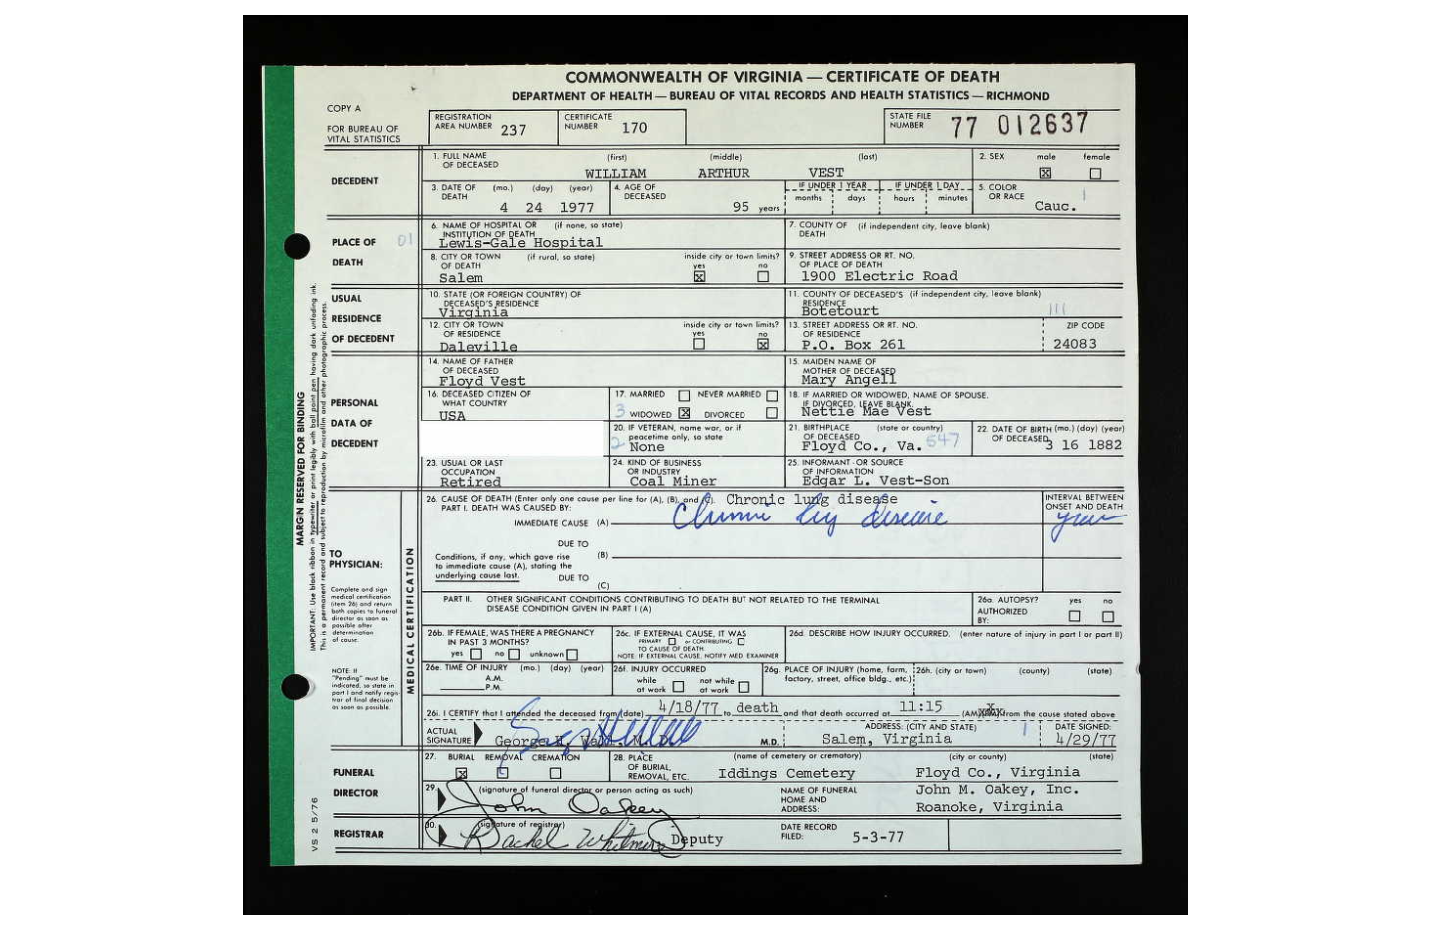 COMMONWEALTH OF VIRGINIA — CERTIFICATE OF DEATH
DEPARTMENT OF HEALTH — BUREAU OF VITAL RECORDS AND HEALTH STATISTICS — RICHMOND
COPY A
FOR BUREAU OF
VITAL STATISTICS
REGISTRATION
AREA NUMBER 237
CERTIFICATE
NUMBER 170
STATE FILE
NUMBER 77 012637
DECEDENT
1. FULL NAME
OF DECEASED
(first) (middle) (last)
WILLIAM ARTHUR VEST
2. SEX male female
☒ ☐
3. DATE OF (mo.) (day) (year)
DEATH
4 24 1977
4. AGE OF
DECEASED
95 years
IF UNDER 1 YEAR IF UNDER 1 DAY
months days hours minutes
5. COLOR
OR RACE
Cauc. 1
PLACE OF
DEATH
01
6. NAME OF HOSPITAL OR (if none, so state)
INSTITUTION OF DEATH
Lewis-Gale Hospital
7. COUNTY OF (if independent city, leave blank)
DEATH
8. CITY OR TOWN (if rural, so state) inside city or town limits?
OF DEATH yes no
Salem ☒ ☐
9. STREET ADDRESS OR RT. NO.
OF PLACE OF DEATH
1900 Electric Road
USUAL
RESIDENCE
OF DECEDENT
10. STATE (OR FOREIGN COUNTRY) OF
DECEASED'S RESIDENCE
Virginia
11. COUNTY OF DECEASED'S (if independent city, leave blank)
RESIDENCE
Botetourt
12. CITY OR TOWN inside city or town limits?
OF RESIDENCE yes no
Daleville ☐ ☒
13. STREET ADDRESS OR RT. NO. ZIP CODE
OF RESIDENCE
P.O. Box 261 24083
PERSONAL
DATA OF
DECEDENT
14. NAME OF FATHER
OF DECEASED
Floyd Vest
15. MAIDEN NAME OF
MOTHER OF DECEASED
Mary Angell
16. DECEASED CITIZEN OF
WHAT COUNTRY
USA
17. MARRIED ☐ NEVER MARRIED ☐
3 WIDOWED ☒ DIVORCED ☐
18. IF MARRIED OR WIDOWED, NAME OF SPOUSE.
IF DIVORCED, LEAVE BLANK.
Nettie Mae Vest
20. IF VETERAN, name war, or if
peacetime only, so state
2 None
21. BIRTHPLACE (state or country)
OF DECEASED
Floyd Co., Va. 547
22. DATE OF BIRTH (mo.) (day) (year)
OF DECEASED
3 16 1882
23. USUAL OR LAST
OCCUPATION
Retired
24. KIND OF BUSINESS
OR INDUSTRY
Coal Miner
25. INFORMANT - OR SOURCE
OF INFORMATION
Edgar L. Vest-Son
MARGIN RESERVED FOR BINDING
IMPORTANT: Use black ribbon in typewriter or print legibly with ball point pen having dark unfading ink.
This is a permanent record and subject to reproduction by microfilm and other photographic process.
VS 2 5/76
TO
PHYSICIAN:
Complete and sign
medical certification
(item 26) and return
both copies to funeral
director as soon as
possible after
determination
of cause.
NOTE: If
"Pending" must be
indicated, so state in
part I and notify regis-
trar of final decision
as soon as possible.
MEDICAL CERTIFICATION
26. CAUSE OF DEATH (Enter only one cause per line for (A), (B), and (C). Chronic lung disease
PART I. DEATH WAS CAUSED BY:
IMMEDIATE CAUSE (A) Chronic lung disease
INTERVAL BETWEEN
ONSET AND DEATH
years
DUE TO
(B)
Conditions, if any, which gave rise
to immediate cause (A), stating the
underlying cause last. DUE TO
(C)
PART II. OTHER SIGNIFICANT CONDITIONS CONTRIBUTING TO DEATH BUT NOT RELATED TO THE TERMINAL
DISEASE CONDITION GIVEN IN PART I (A)
26a. AUTOPSY? yes no
AUTHORIZED
BY: ☐ ☐
26b. IF FEMALE, WAS THERE A PREGNANCY
IN PAST 3 MONTHS?
yes ☐ no ☐ unknown ☐
26c. IF EXTERNAL CAUSE, IT WAS
PRIMARY ☐ or CONTRIBUTING ☐
TO CAUSE OF DEATH
NOTE: IF EXTERNAL CAUSE, NOTIFY MED. EXAMINER
26d. DESCRIBE HOW INJURY OCCURRED. (enter nature of injury in part I or part II)
26e. TIME OF INJURY (mo.) (day) (year)
A.M.
P.M.
26f. INJURY OCCURRED
while not while
at work ☐ at work ☐
26g. PLACE OF INJURY (home, farm,
factory, street, office bldg., etc.)
26h. (city or town) (county) (state)
26i. I CERTIFY that I attended the deceased from (date) 4/18/77 to death and that death occurred at 11:15 (AM) from the cause stated above
ACTUAL
SIGNATURE George M.D.
ADDRESS: (CITY AND STATE)
Salem, Virginia 1
DATE SIGNED:
4/29/77
FUNERAL
DIRECTOR
27. BURIAL REMOVAL CREMATION
☒ ☐ ☐
28. PLACE (name of cemetery or crematory) (city or county) (state)
OF BURIAL,
REMOVAL, ETC. Iddings Cemetery Floyd Co., Virginia
29. (signature of funeral director or person acting as such)
John Oakey
NAME OF FUNERAL
HOME AND
ADDRESS:
John M. Oakey, Inc.
Roanoke, Virginia
REGISTRAR
30. (signature of registrar)
Rachel Whitmire Deputy
DATE RECORD
FILED: 5-3-77